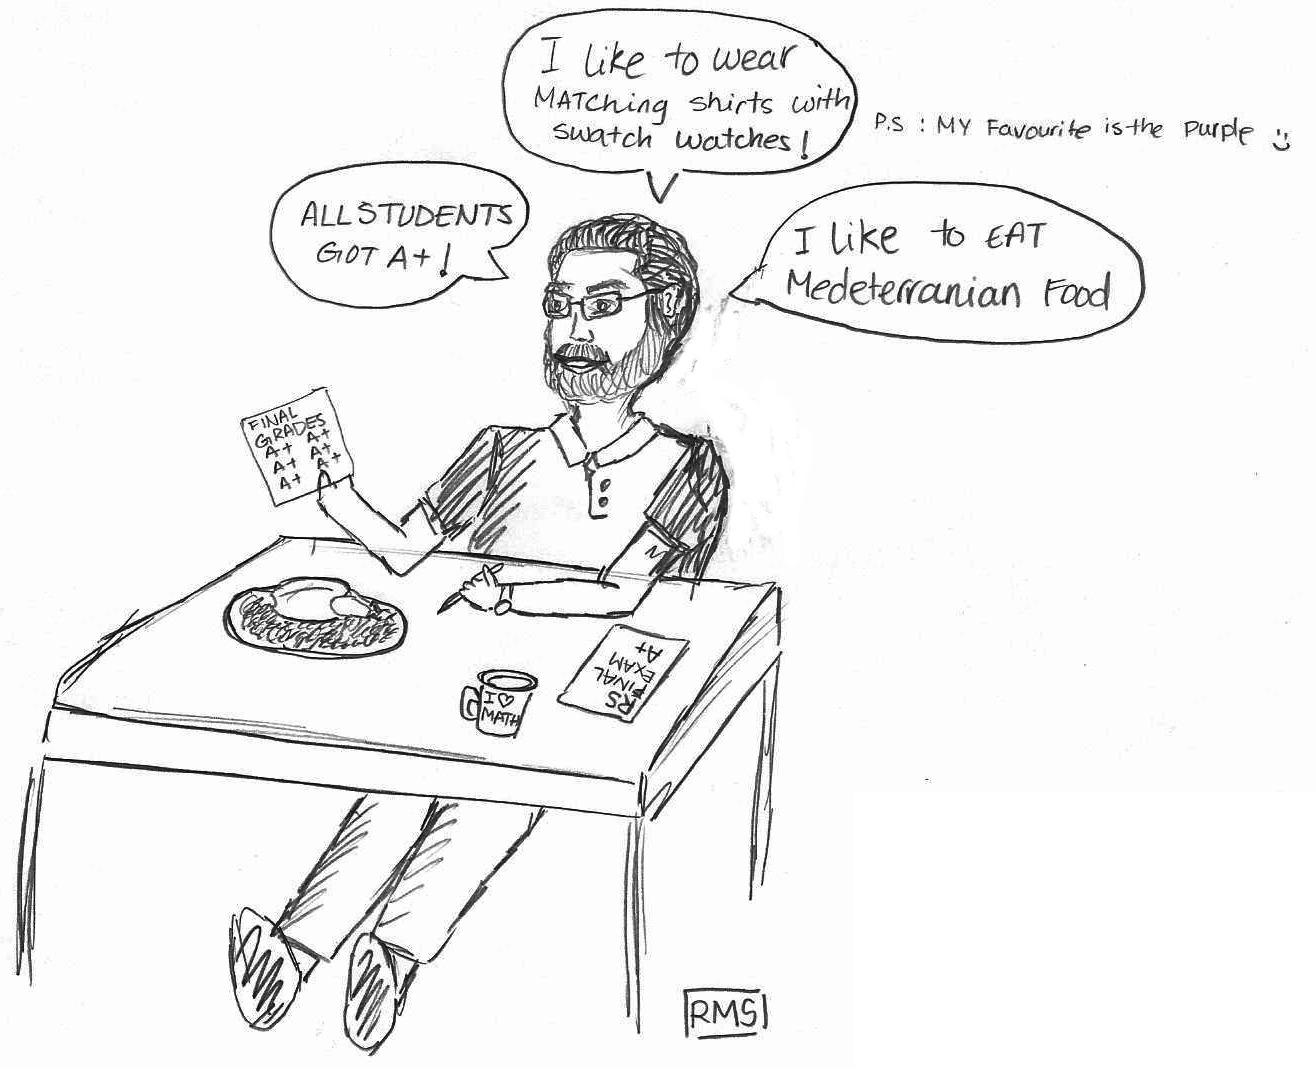 I like to wear
MATching shirts with
swatch watches!
P.S : MY Favourite is the Purple
ALL STUDENTS
GOT A+!
I like to EAT
Medeterranian Food
FINAL
GRADES
A+ A+
A+ A+
A+ A+
RS
FINAL
EXAM
A+
I ♡
MATH
RMS